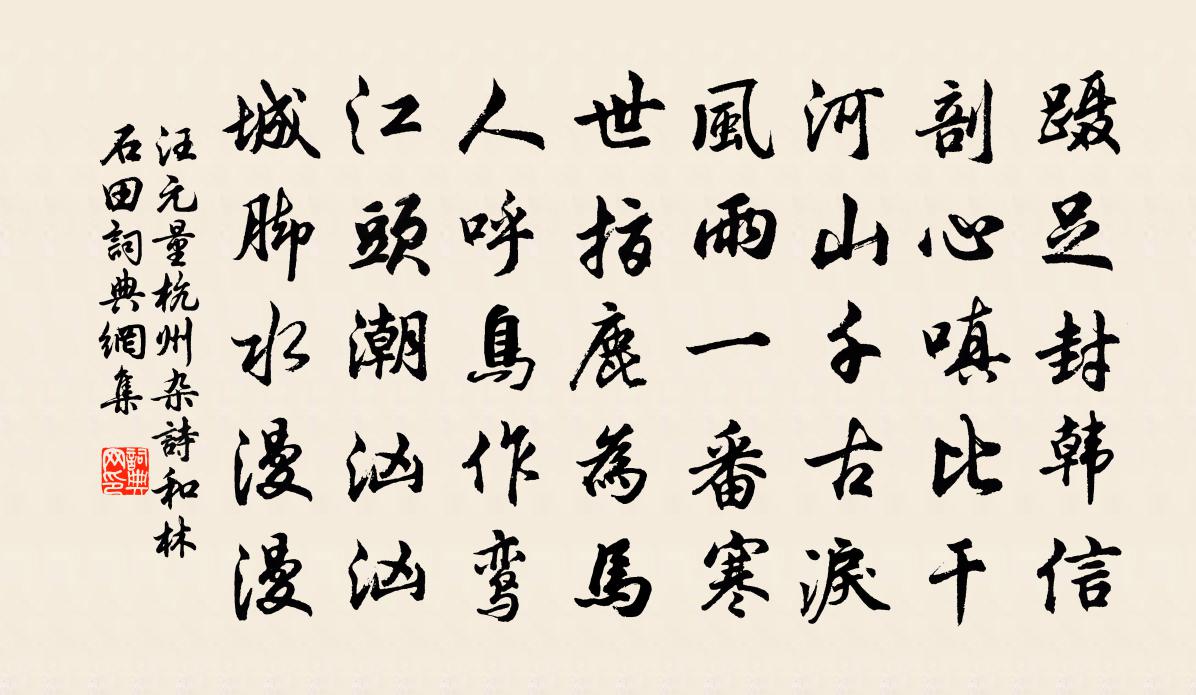 蹑足封韩信
剖心嗔比干
河山千古淚
風雨一番寒
世指鹿為馬
人呼鳥作鸾
江頭潮汹汹
城脚水漫漫
汪元量杭州杂詩和林
石田詞典網集
詞典网印